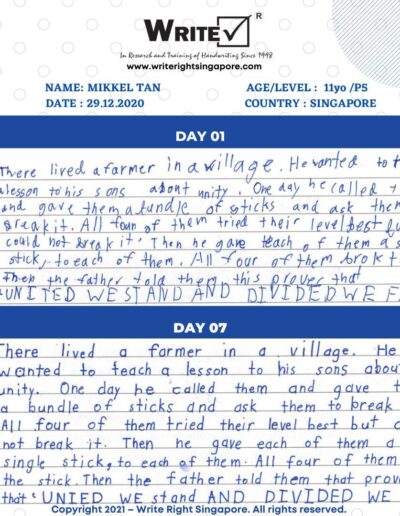 WRITE
R
In Research and Training of Handwriting Since 1998
www.writerightsingapore.com
NAME: MIKKEL TAN
AGE/LEVEL : 11yo /P5
DATE : 29.12.2020
COUNTRY : SINGAPORE
DAY 01
There lived a farmer in a village. He wanted to t
a lesson to his sons about unity. One day he called t
and gave them a bundle of sticks and ask them
break it. All four of them tried their level best bu
could not break it. Then he gave each of them a s
stick, to each of them. All four of them brok t
Then the father told them this prover that
"UNITED WE STAND AND DIVIDED WE F
DAY 07
There lived a farmer in a village. He
wanted to teach a lesson to his sons about
unity. One day he called them and gave t
a bundle of sticks and ask them to break
All four of them tried their level best but c
not break it. Then he gave each of them a
single stick, to each of them. All four of them
the stick. Then the father told them that prov
that "UNIED WE stand AND DIVIDED WE
Copyright 2021 – Write Right Singapore. All rights reserved.